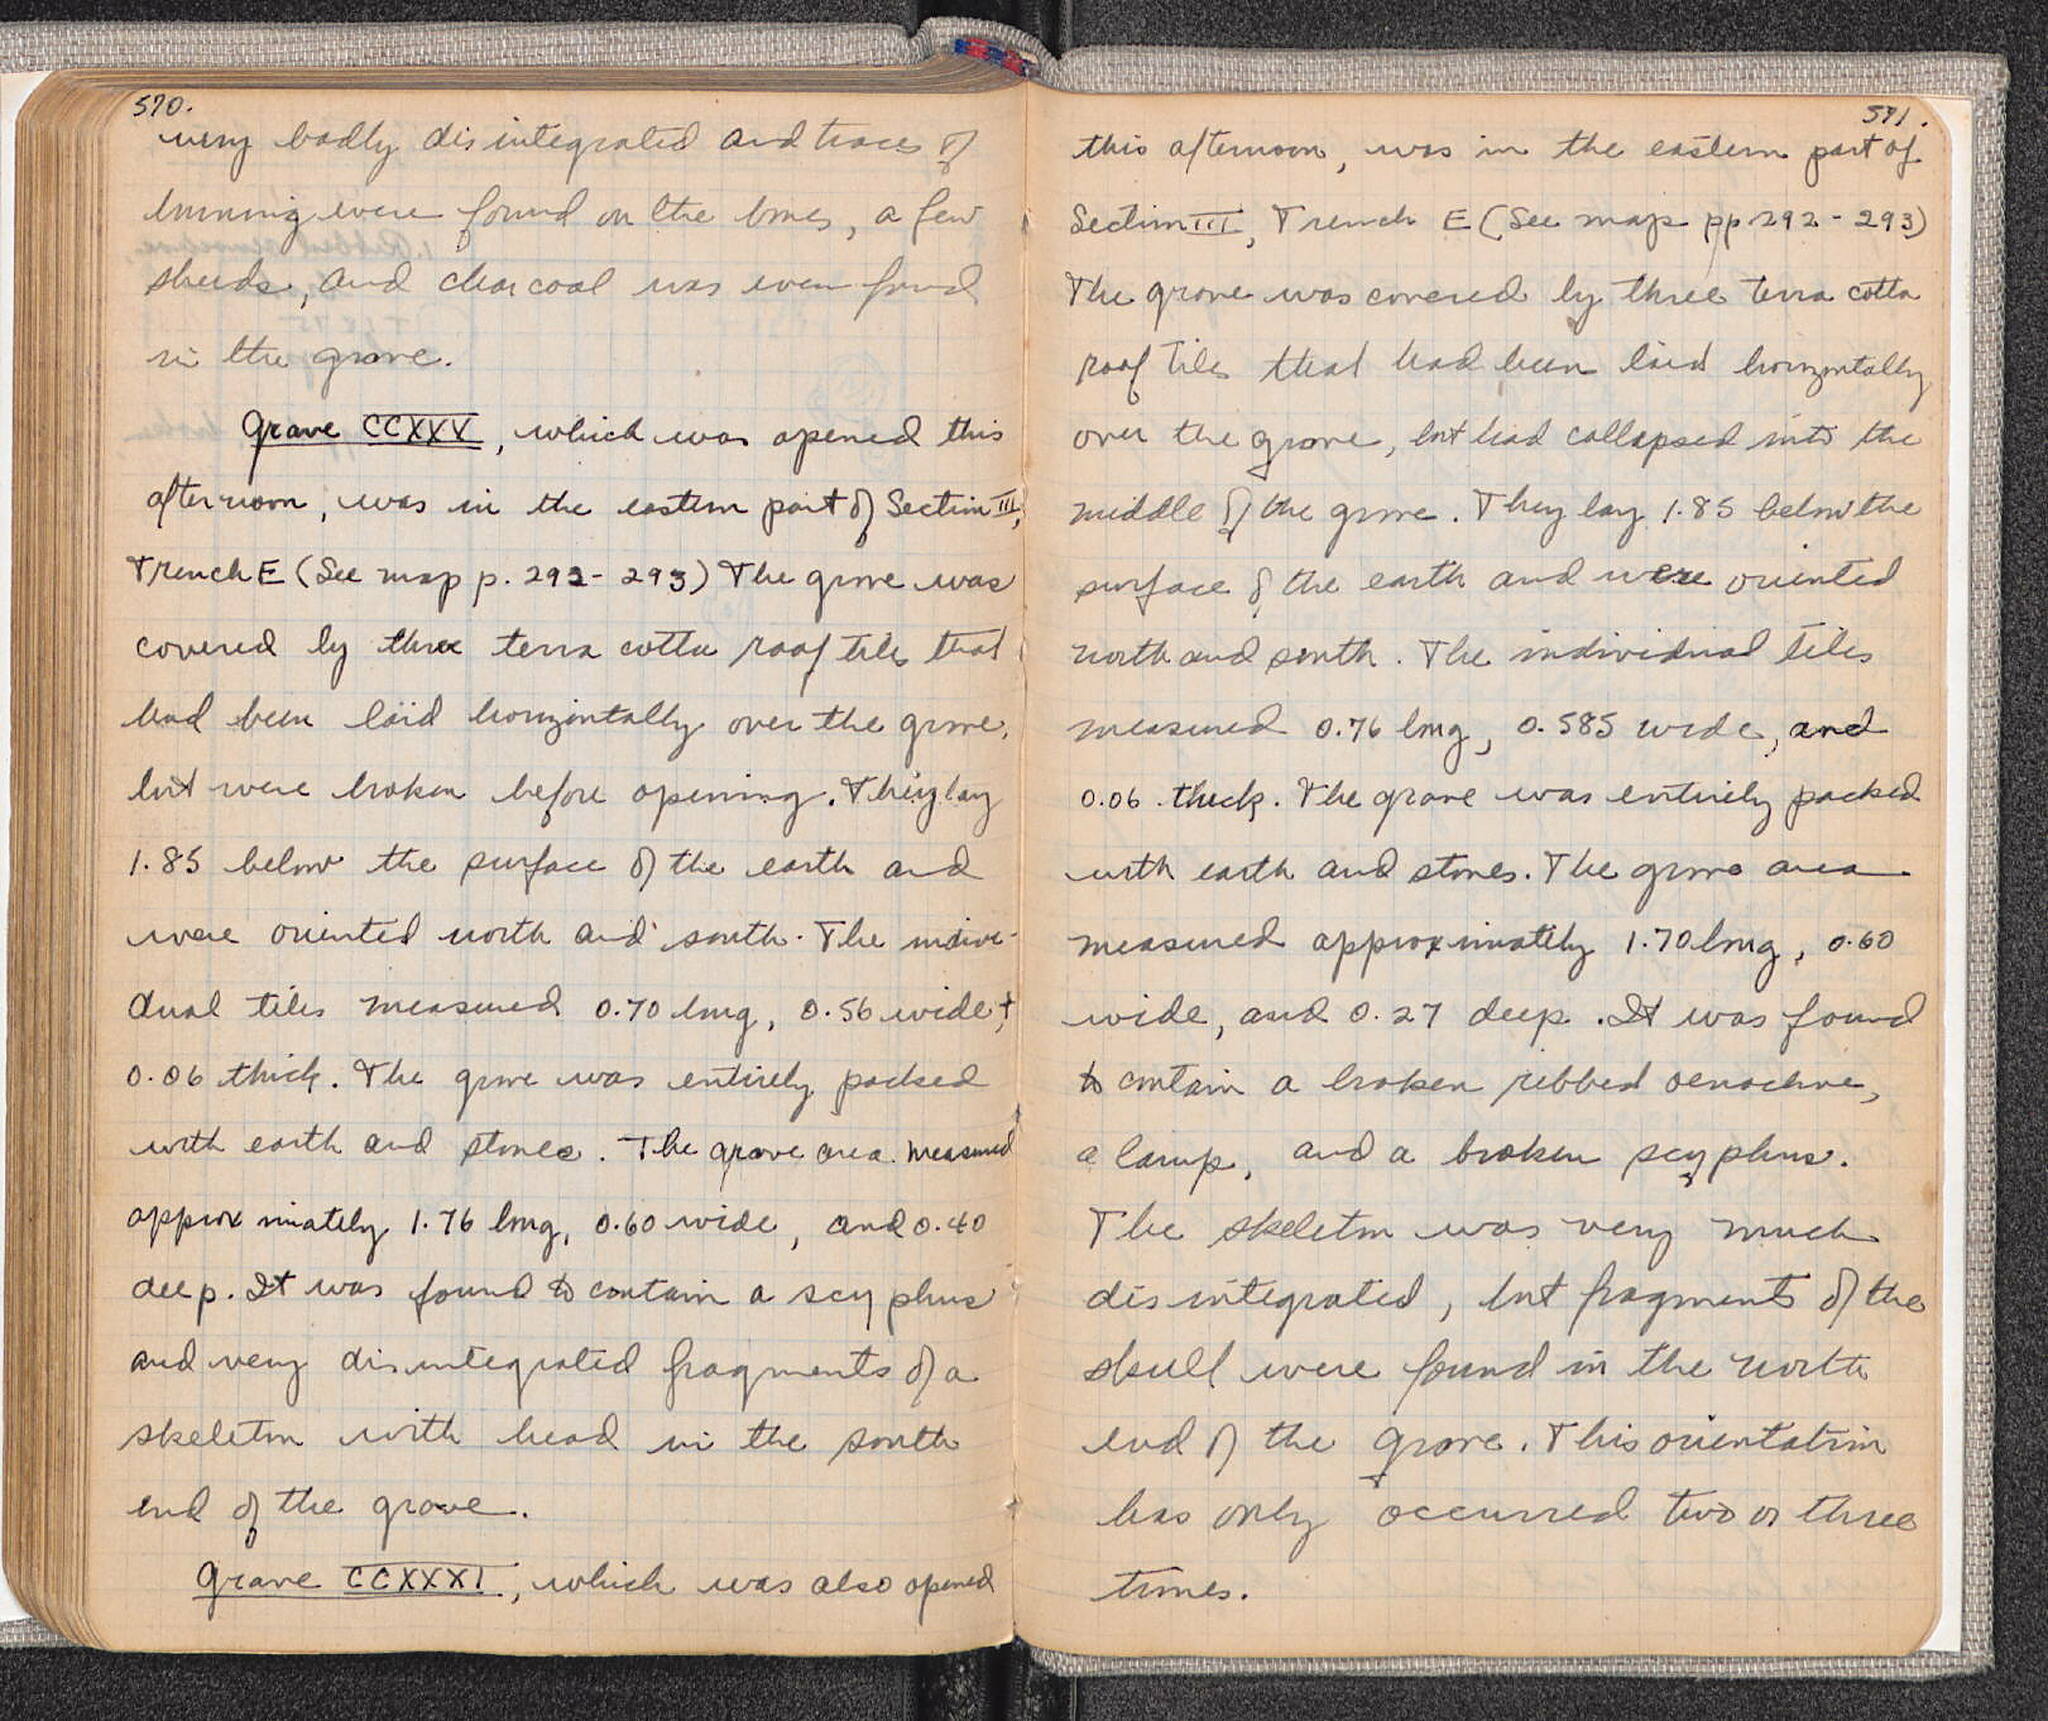 570.
very badly disintegrated and traces of
burning were found on the bones, a few
sherds, and charcoal was even found
in the grave.
Grave CCXXV, which was opened this
afternoon, was in the eastern part of Section III,
Trench E (See map p. 292-293) The grave was
covered by three terra cotta roof tiles that
had been laid horizontally over the grave,
but were broken before opening. They lay
1.85 below the surface of the earth and
were oriented north and south. The indivi-
dual tiles measured 0.70 long, 0.56 wide, +
0.06 thick. The grave was entirely packed
with earth and stones. The grave area measured
approximately 1.76 long, 0.60 wide, and 0.40
deep. It was found to contain a scyphus
and very disintegrated fragments of a
skeleton with head in the south
end of the grave.
Grave CCXXXI, which was also opened
571.
this afternoon, was in the eastern part of
Section III, Trench E (See map pp 292-293)
The grave was covered by three terra cotta
roof tiles that had been laid horizontally
over the grave, but had collapsed into the
middle of the grave. They lay 1.85 below the
surface of the earth and were oriented
north and south. The individual tiles
measured 0.76 long, 0.585 wide, and
0.06 thick. The grave was entirely packed
with earth and stones. The grave area
measured approximately 1.70 long, 0.60
wide, and 0.27 deep. It was found
to contain a broken ribbed oenochoe,
a lamp, and a broken scyphus.
The skeleton was very much
disintegrated, but fragments of the
skull were found in the north
end of the grave. This orientation
has only occurred two or three
times.